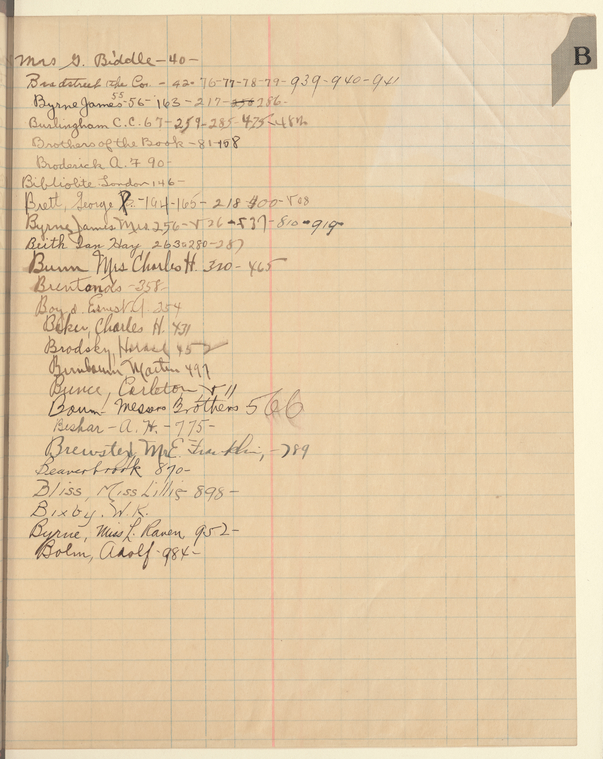 B
Mrs G. Biddle-40-
Bradstreet the Co. - 42-76-77-78-79-939-940-941
55
Byrne James-56-163-217-286-
Burlingham C.C. 67-259-285-475-482
Brothers of the Book-81-108
Broderick A.F. 90-
Bibliolite London 146-
Brett, George P.-164-165-218-400-508
Byrne James Mrs 256-526-537-810-919
Beith Ian Hay 263-280-287
Bunn Mrs Charles H. 320-465
Brentanos-358-
Boyd Ernest A. 354
Baker, Charles H. 431
Brodsky, Horace 452
Birnbaum Martin 497
Bunce, Carleton 511
Boum Messrs Brothers 566
Beshar-A.H.-775-
Brewster, Mr E. Franklin,-789
Beaverbrook 870-
Bliss, Miss Lillie 898-
Bixby, W.K.
Byrne, Miss L. Raven 952-
Bolm, Adolf-984-